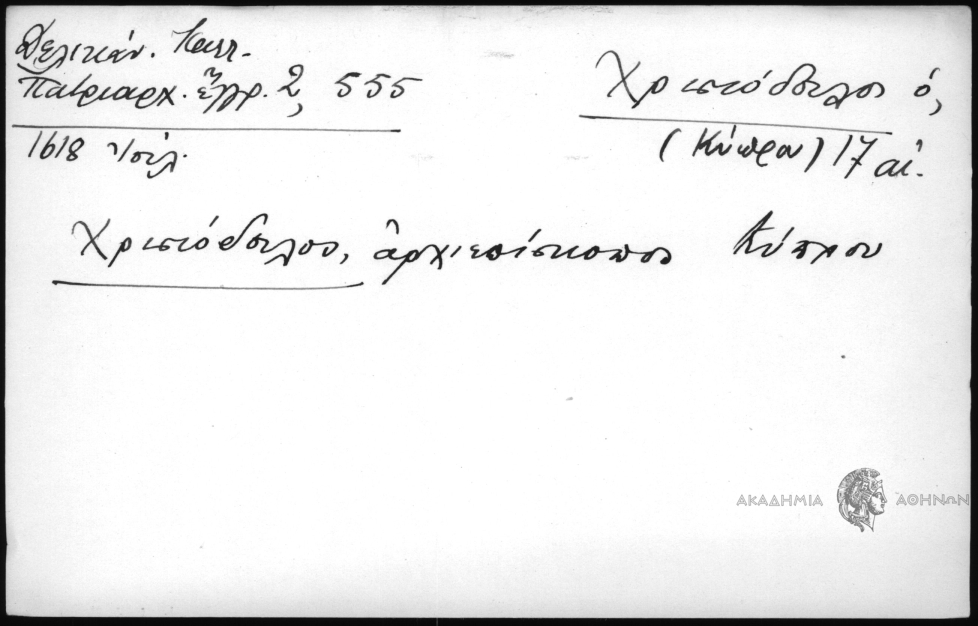 Δελικάν. Καλλ.
Πατριαρχ. ἔγγρ. 2, 555
1618 Ἰουλ.
Χριστόδουλος ὁ,
(Κύπρου) 17 αἰ.
Χριστόδουλος, ἀρχιεπίσκοπος Κύπρου
ΑΚΑΔΗΜΙΑ ΑΘΗΝΩΝ